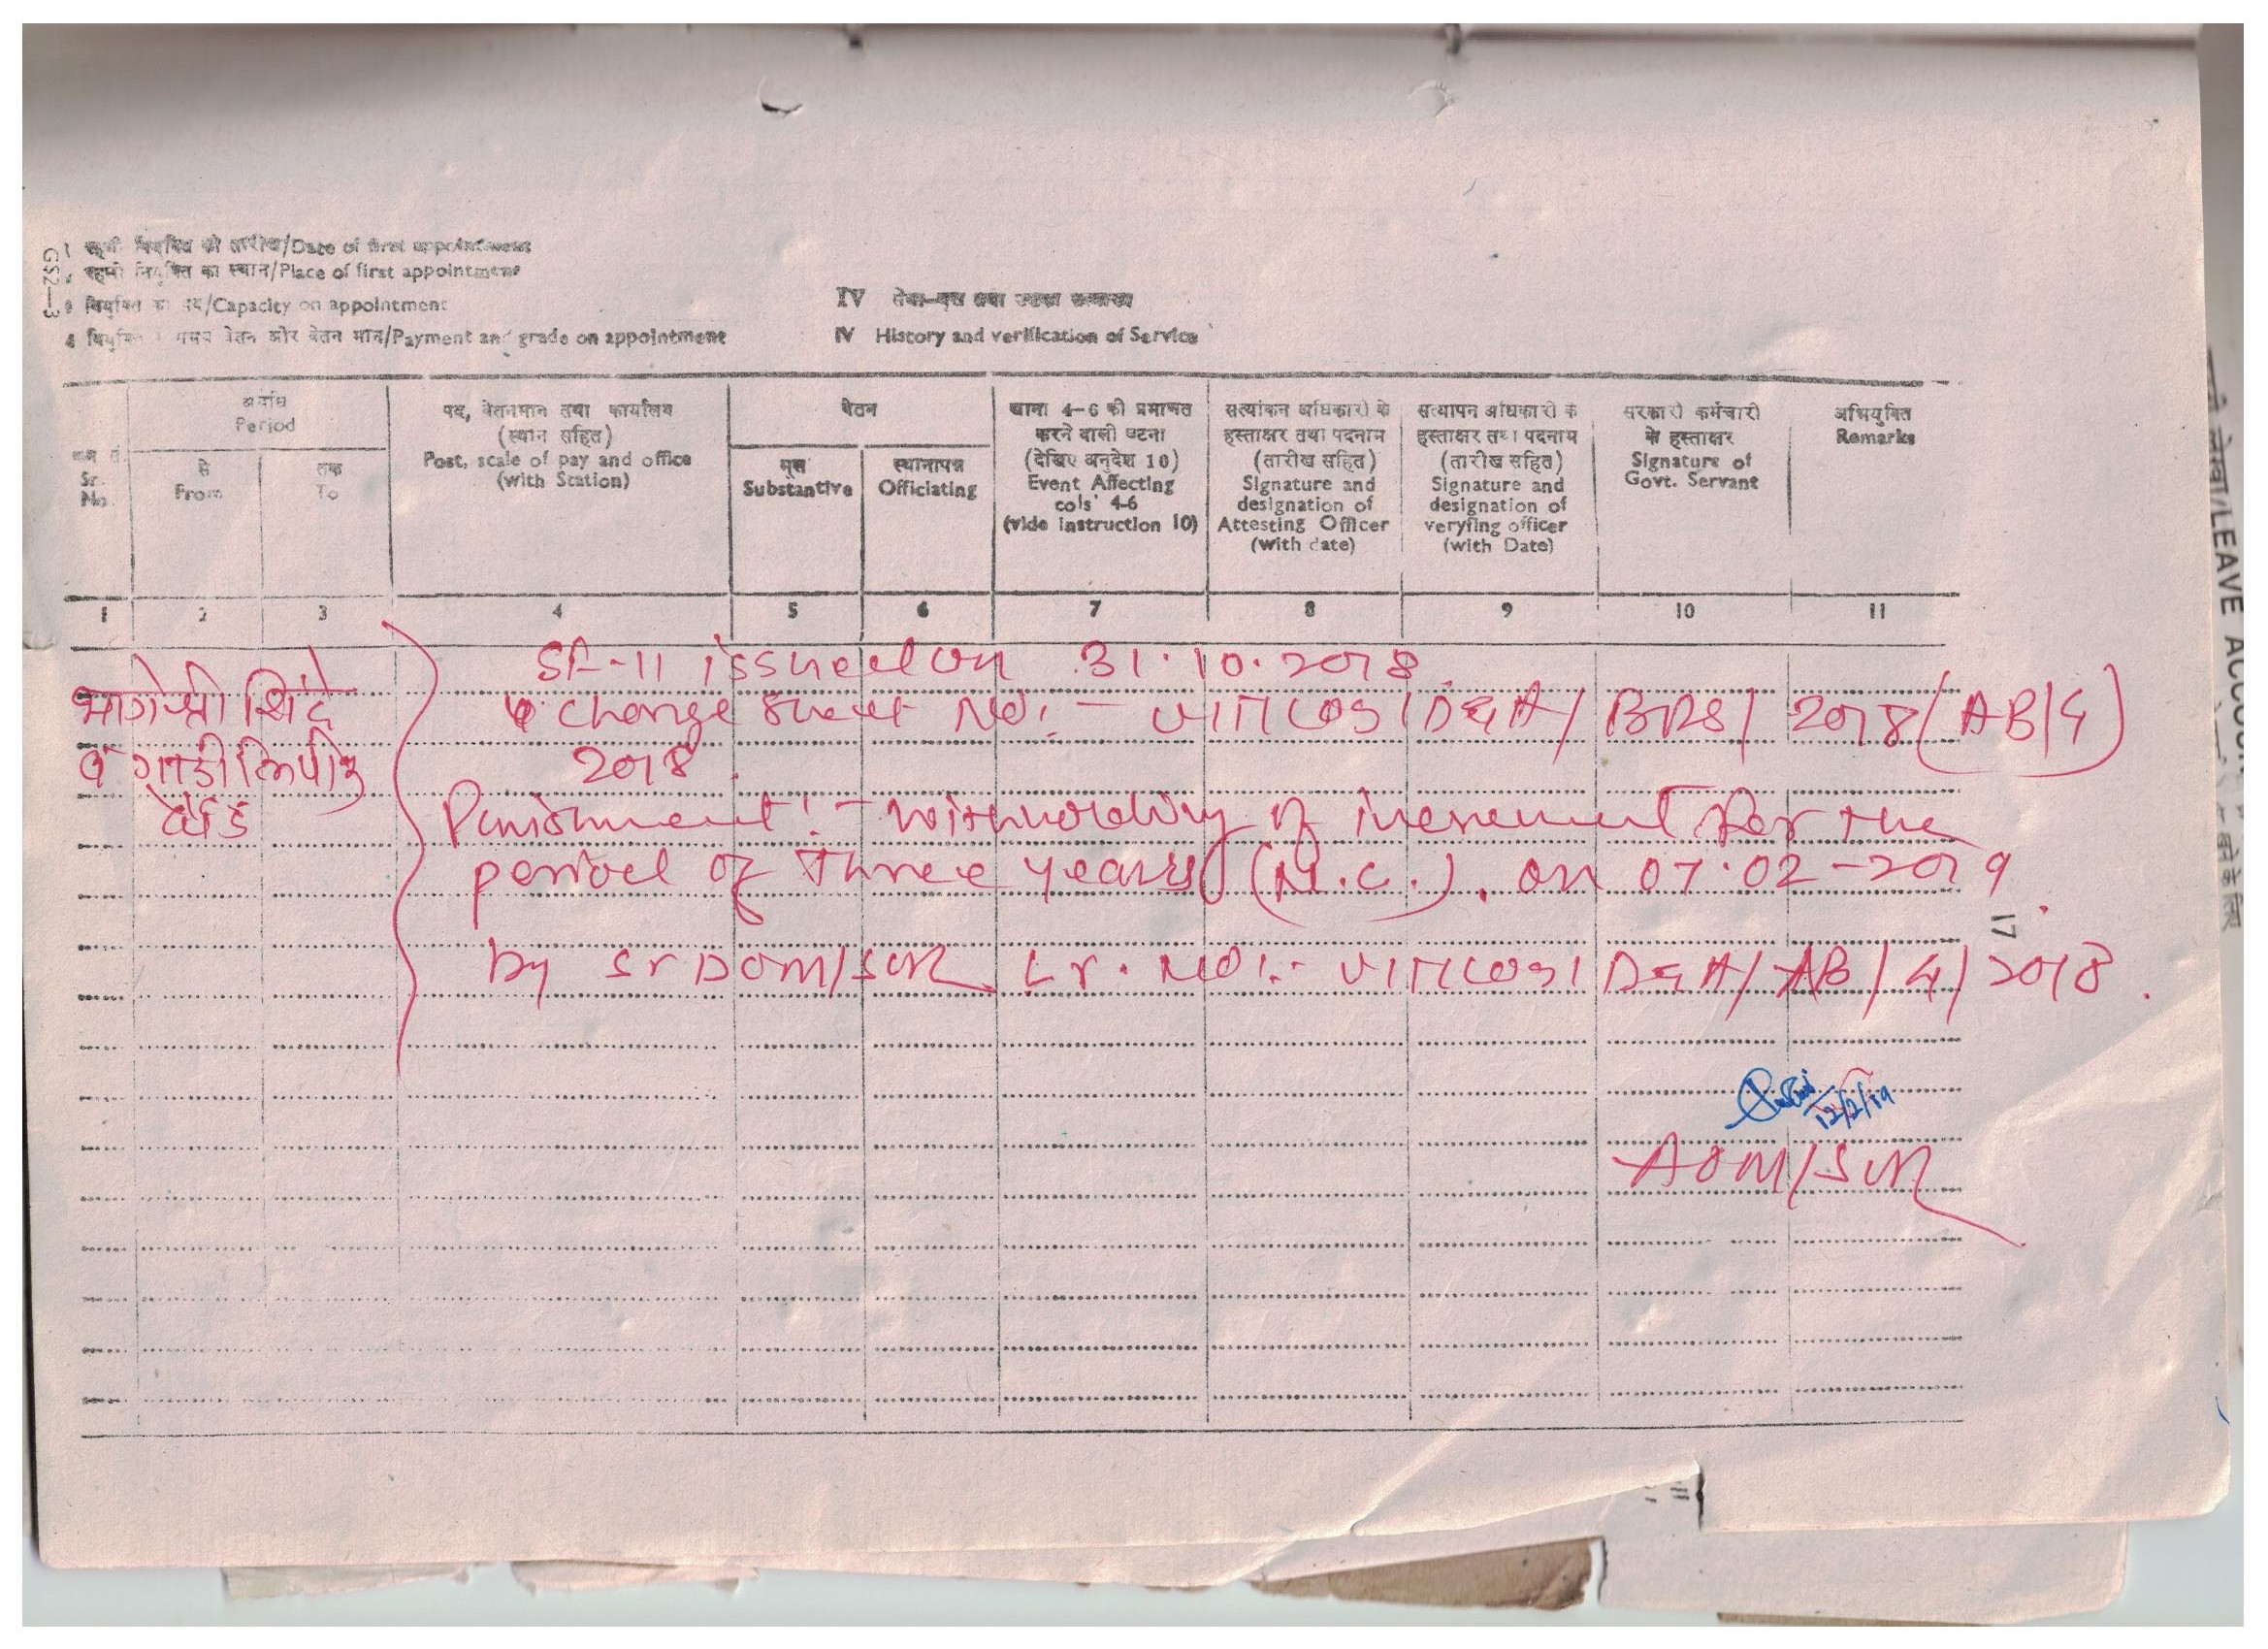 1 पहली नियुक्ति की तारीख/Date of first appointment
पहली नियुक्ति का स्थान/Place of first appointment
3 नियुक्ति का पद/Capacity on appointment
4 नियुक्ति के समय वेतन और वेतन मान/Payment and grade on appointment
GS2—3
IV सेवा-वृत्त तथा उसका सत्यापन
IV History and verification of Service
क्रम सं.
Sr.
No.
अवधि
Period
से
From
तक
To
पद, वेतनमान तथा कार्यालय
(स्थान सहित)
Post, scale of pay and office
(with Station)
वेतन
मूल
Substantive
स्थानापन्न
Officiating
खाना 4-6 को प्रमाणित
करने वाली घटना
(देखिए अनुदेश 10)
Event Affecting
cols' 4-6
(vide instruction 10)
सत्यांकन अधिकारी के
हस्ताक्षर तथा पदनाम
(तारीख सहित)
Signature and
designation of
Attesting Officer
(with date)
सत्यापन अधिकारी के
हस्ताक्षर तथा पदनाम
(तारीख सहित)
Signature and
designation of
veryfing officer
(with Date)
सरकारी कर्मचारी
के हस्ताक्षर
Signature of
Govt. Servant
अभियुक्ति
Remarks
1 2 3 4 5 6 7 8 9 10 11
भागेश्री शिंदे
व गाडी लिपीक
SF-11 issued on 31.10.2018
charge sheet No:-
/ D&A / BRS / 2018 (AB/4)
2018.
Punishment:- withholding of increment for the
period of three years (N.C.). on 07.02-2019.
by Sr DOM/SUR Lr. No:-
/ D&A / AB / 4 / 2018.
17
12/2/19
AOM/SUR
/LEAVE ACCOUN